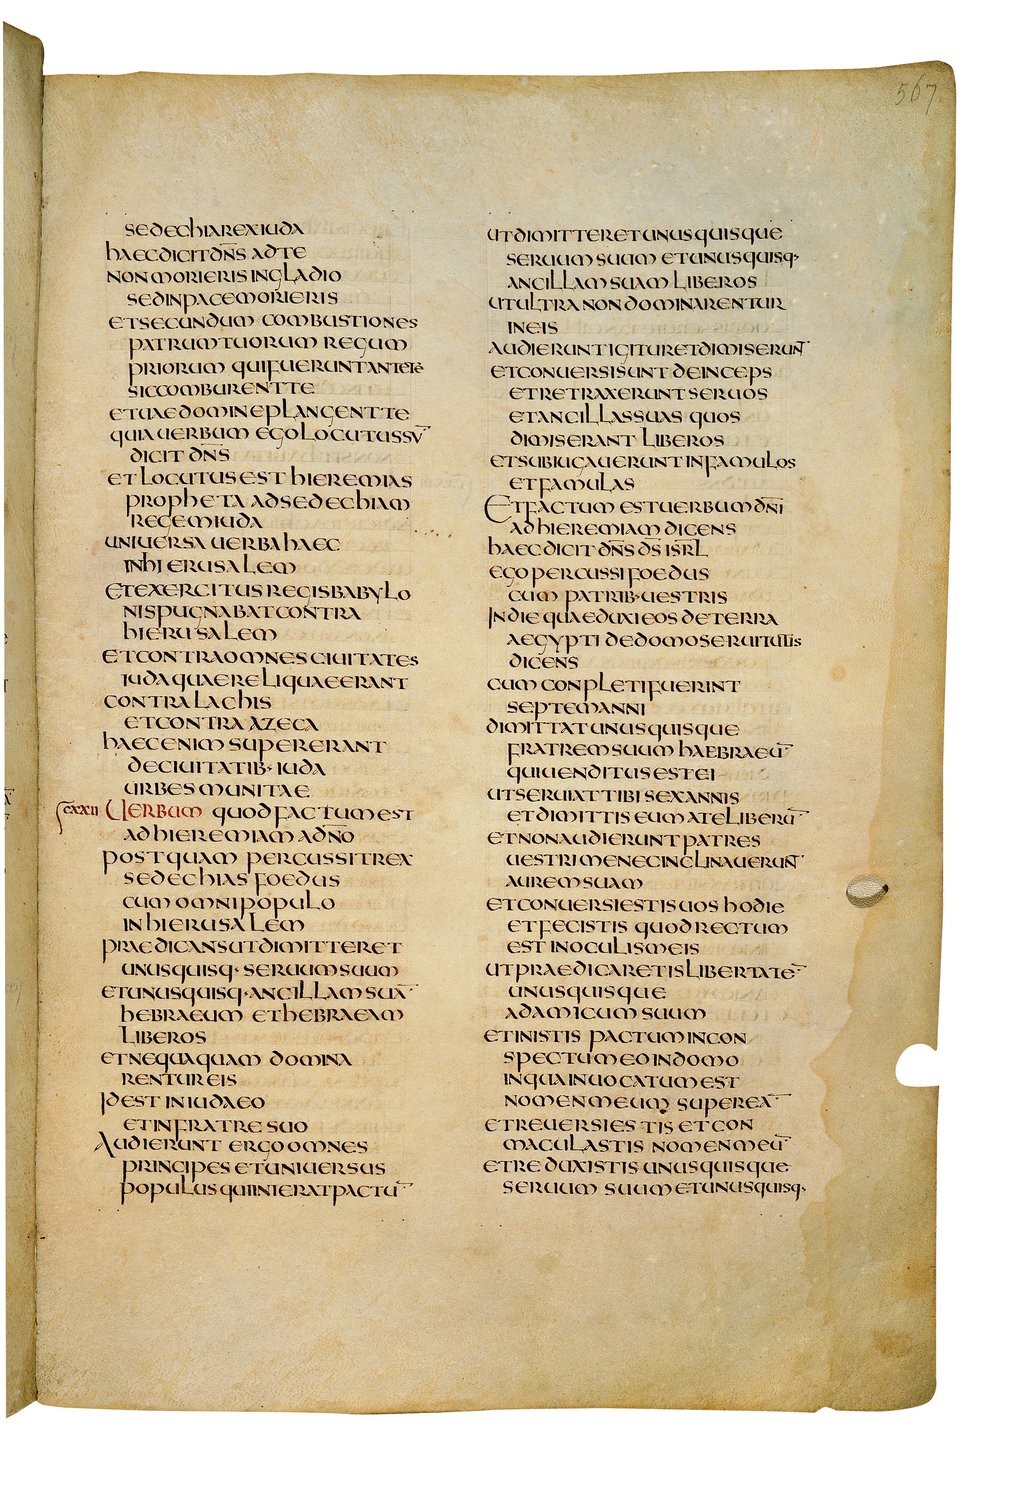 567
sedechia rex iuda
haec dicit dn̄s ad te
non morieris in gladio
sed in pace morieris
et secundum combustiones
patrum tuorum regum
priorum qui fuerunt ante te
sic comburent te
et uae domine plangent te
quia uerbum ego locutus sū
dicit dn̄s
et locutus est hieremias
propheta ad sedechiam
regem iuda
uniuersa uerba haec
in hierusalem
et exercitus regis babylo
nis pugnabat contra
hierusalem
et contra omnes ciuitates
iuda quae reliquae erant
contra lachis
et contra azeca
haec enim supererant
de ciuitatib· iuda
urbes munitae
cxxii Uerbum quod factum est
ad hieremiam a dn̄o
postquam percussit rex
sedechias foedus
cum omni populo
in hierusalem
praedicans ut dimitteret
unusquisq· seruum suum
et unusquisq· ancillam suā
hebraeum et hebraeam
liberos
et nequaquam domina
rentur eis
Id est in iudaeo
et in fratre suo
Audierunt ergo omnes
principes et uniuersus
populus qui inierat pactū
ut dimitteret unusquisque
seruum suum et unusquisq·
ancillam suam liberos
ut ultra non dominarentur
in eis
audierunt igitur et dimiserunt̄
et conuersi sunt deinceps
et retraxerunt seruos
et ancillas suas quos
dimiserant liberos
et subiugauerunt in famulos
et famulas
Et factum est uerbum dn̄i
ad hieremiam dicens
haec dicit dn̄s d̄s isr̄l
ego percussi foedus
cum patrib· uestris
In die qua eduxi eos de terra
aegypti de domo seruitutis
dicens
cum conpleti fuerint
septem anni
dimittat unusquisque
fratrem suum haebraeū
qui uenditus est ei
ut seruiat tibi sex annis
et dimittis eum a te liberū
et non audierunt patres
uestri me nec inclinauerunt̄
aurem suam
et conuersi estis uos hodie
et fecistis quod rectum
est in oculis meis
ut praedicaretis libertatē
unusquisque
ad amicum suum
et inistis pactum in con
spectu meo in domo
in qua inuocatum est
nomen meum super eā
et reuersi estis et con
maculastis nomen meū
et reduxistis unusquisque
seruum suum et unusquisq·